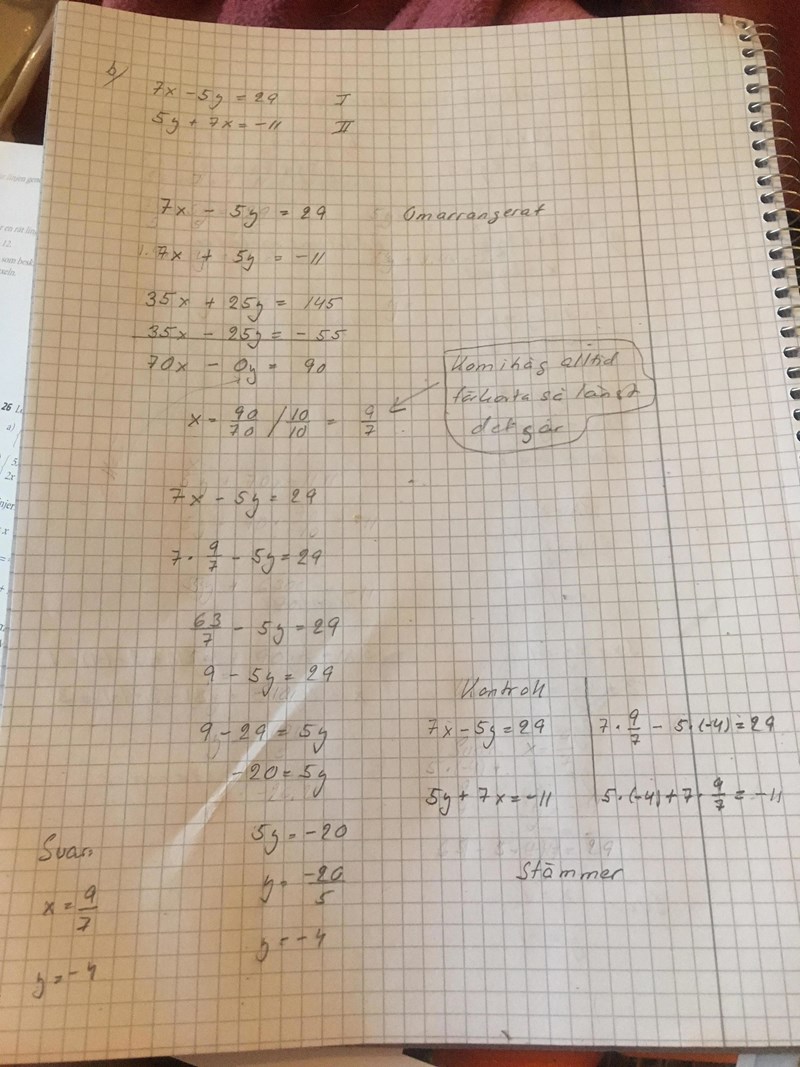 b)
7x - 5y = 29 I
5y + 7x = -11 II
7x - 5y = 29 Omarrangerat
7x + 5y = -11
35x + 25y = 145
35x - 25y = -55
70x - 0y = 90
x = 90/70 / 10/10 = 9/7
Komihåg alltid
förkorta så långt
det går
7x - 5y = 29
7 · 9/7 - 5y = 29
63/7 - 5y = 29
9 - 5y = 29
9 - 29 = 5y
-20 = 5y
5y = -20
y = -20/5
y = -4
Kontroll
7x - 5y = 29 7 · 9/7 - 5 · (-4) = 29
5y + 7x = -11 5 · (-4) + 7 · 9/7 = -11
Stämmer
Svar:
x = 9/7
y = -4
26
a)